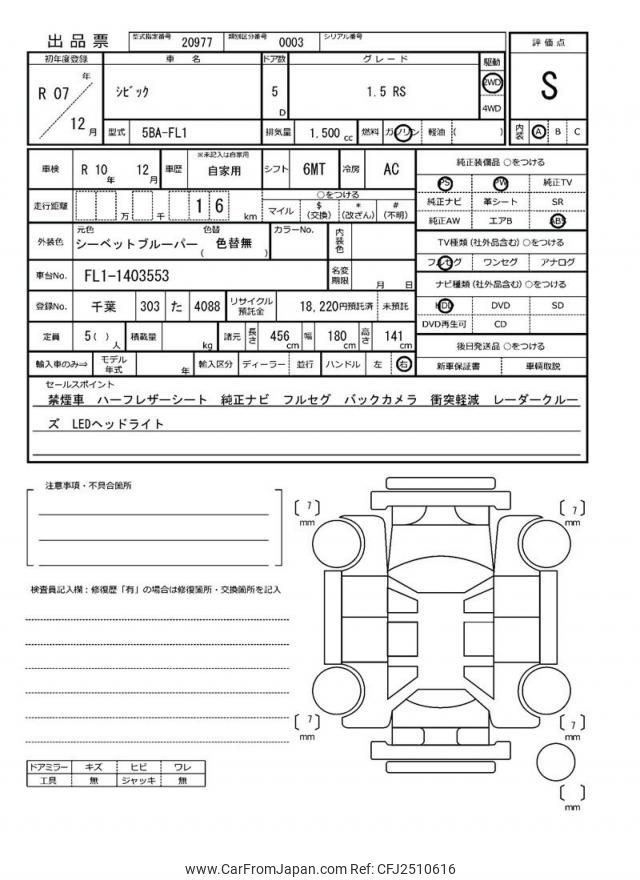 出品票 型式指定番号 20977 類別区分番号 0003 シリアル番号
評価点
S
内装 A B C
初年度登録 車名 ドア数 グレード 駆動
R 07 年 12 月 シビック 5 D 1.5 RS 2WD 4WD
型式 5BA-FL1 排気量 1,500 cc 燃料 ガソリン 軽油 ( )
車検 R 10 年 12 月 車歴 ※未記入は自家用 自家用 シフト 6MT 冷房 AC
走行距離 万 千 1 6 km ○をつける マイル $ (交換) * (改ざん) # (不明)
外装色 元色 シーベットブルーパー 色替 ( 色替無 ) カラーNo. 内装色
車台No. FL1-1403553 名変期限 月 日
登録No. 千葉 303 た 4088 リサイクル預託金 18,220円預託済 未預託
定員 5 ( ) 人 積載量 kg 諸元 長さ 456 cm 幅 180 cm 高さ 141 cm
輸入車のみ⇒ モデル年式 年 輸入区分 ディーラー 並行 ハンドル 左 右
純正装備品 ○をつける
PS PW 純正TV
純正ナビ 革シート SR
純正AW エアB ABS
TV種類 (社外品含む) ○をつける
フルセグ ワンセグ アナログ
ナビ種類 (社外品含む) ○をつける
HDD DVD SD
DVD再生可 CD
後日発送品 ○をつける
新車保証書 車輌取説
セールスポイント
禁煙車 ハーフレザーシート 純正ナビ フルセグ バックカメラ 衝突軽減 レーダークルー
ズ LEDヘッドライト
注意事項・不具合箇所
検査員記入欄：修復歴「有」の場合は修復箇所・交換箇所を記入
ドアミラー キズ ヒビ ワレ
工具 無 ジャッキ 無
〔 7 〕 mm
〔 7 〕 mm
〔 7 〕 mm
〔 7 〕 mm
〔 〕 mm
www.CarFromJapan.com Ref: CFJ2510616